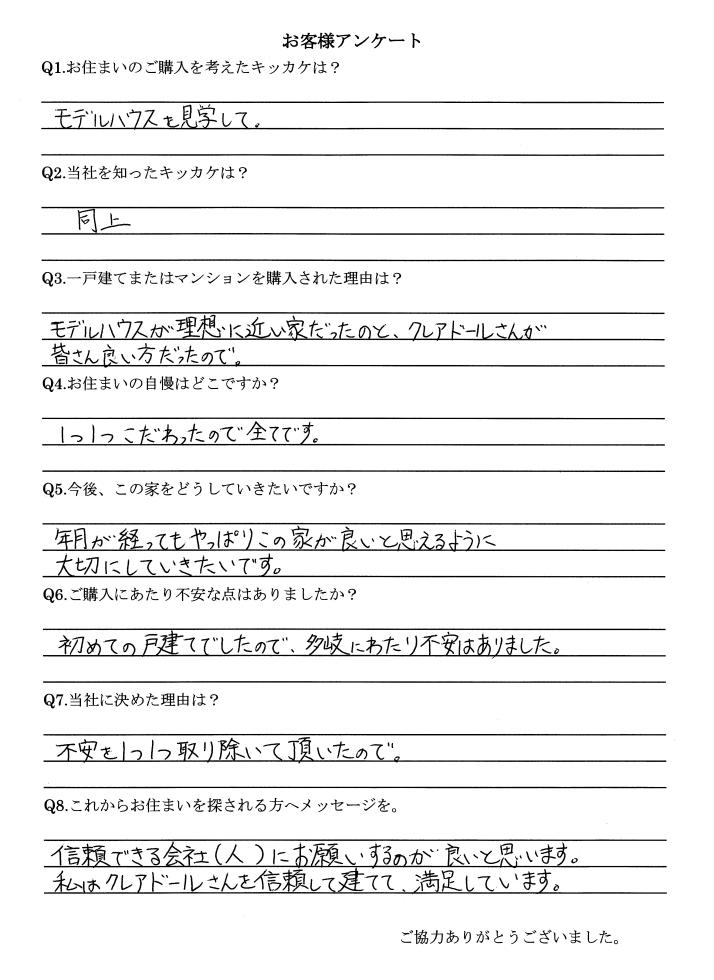 お客様アンケート
Q1.お住まいのご購入を考えたキッカケは？
モデルハウスを見学して。
Q2.当社を知ったキッカケは？
同上
Q3.一戸建てまたはマンションを購入された理由は？
モデルハウスが理想に近い家だったのと、クレアドールさんが
皆さん良い方だったので。
Q4.お住まいの自慢はどこですか？
1つ1つこだわったので全てです。
Q5.今後、この家をどうしていきたいですか？
年月が経ってもやっぱりこの家が良いと思えるように
大切にしていきたいです。
Q6.ご購入にあたり不安な点はありましたか？
初めての戸建てでしたので、多岐にわたり不安はありました。
Q7.当社に決めた理由は？
不安を1つ1つ取り除いて頂いたので。
Q8.これからお住まいを探される方へメッセージを。
信頼できる会社(人)にお願いするのが良いと思います。
私はクレアドールさんを信頼して建てて、満足しています。
ご協力ありがとうございました。